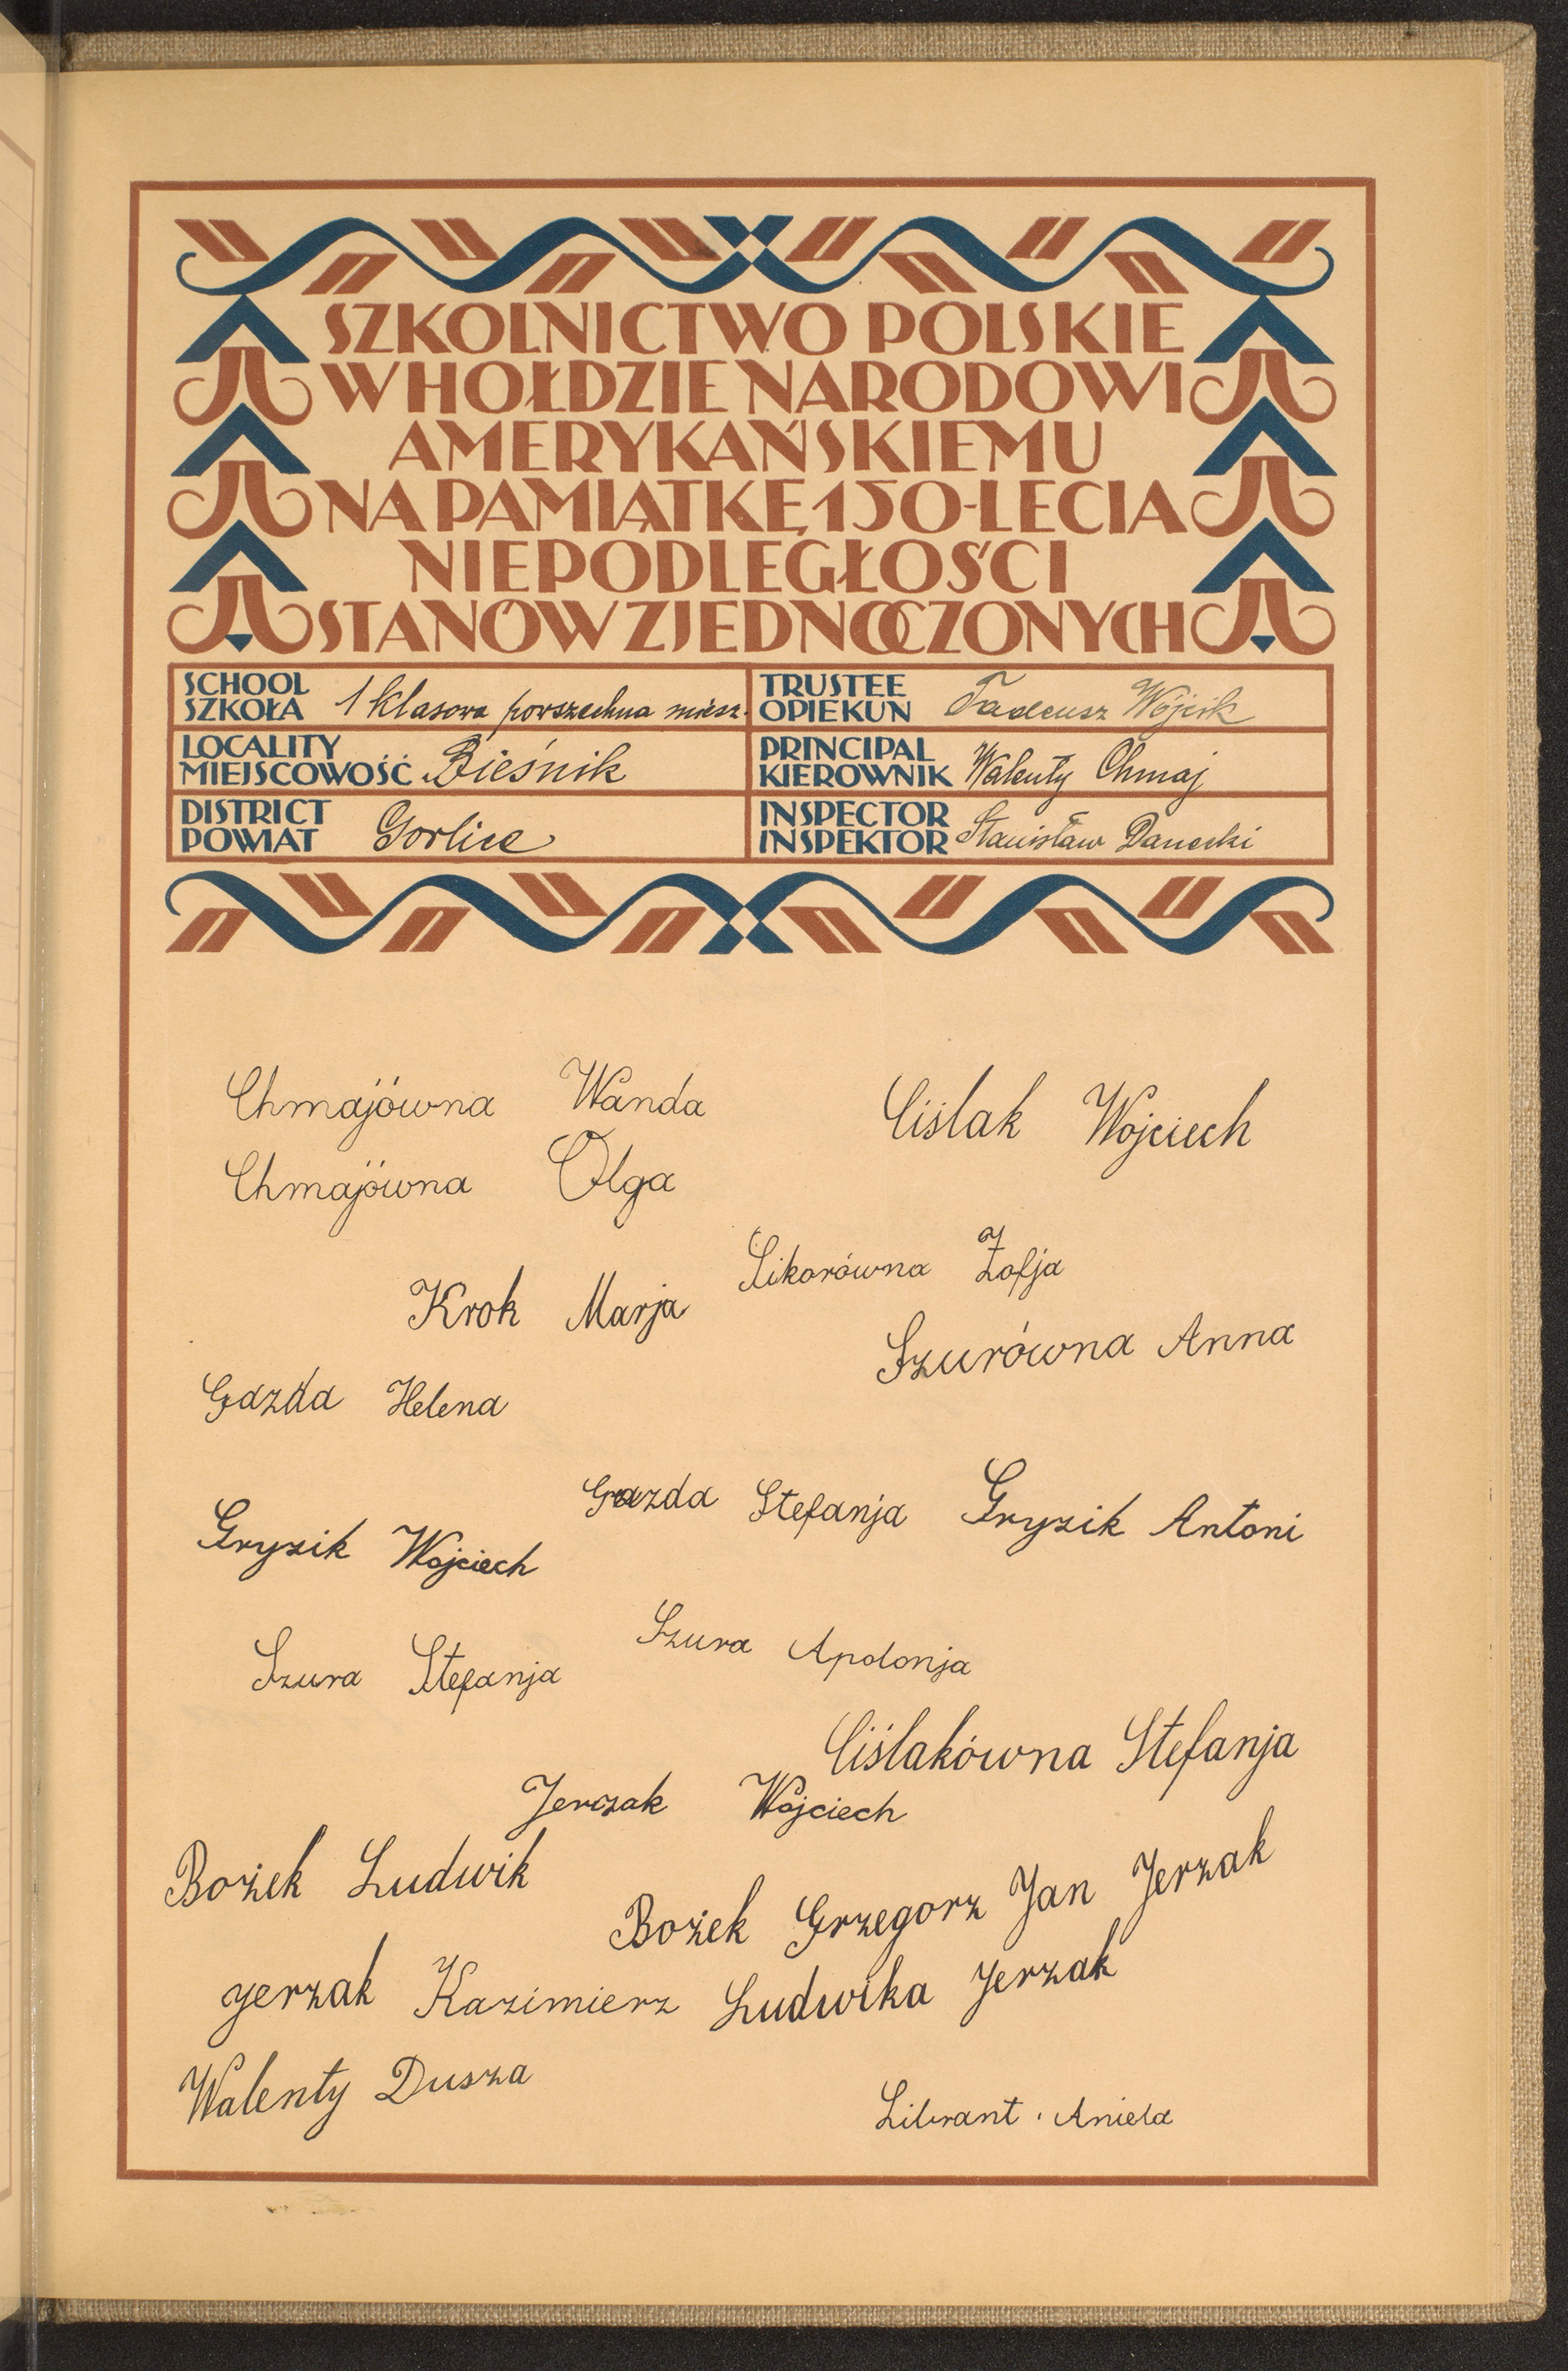 SZKOLNICTWO POLSKIE
W HOŁDZIE NARODOWI
AMERYKAŃSKIEMU
NA PAMIĄTKĘ 150-LECIA
NIEPODLEGŁOŚCI
STANÓW ZJEDNOCZONYCH
SCHOOL
SZKOŁA 1 klasowa powszechna miesz.
TRUSTEE
OPIEKUN Tadeusz Wójcik
LOCALITY
MIEJSCOWOŚĆ Bieśnik
PRINCIPAL
KIEROWNIK Walenty Chmaj
DISTRICT
POWIAT Gorlice
INSPECTOR
INSPEKTOR Stanisław Danecki
Chmajówna Wanda
Ciślak Wojciech
Chmajówna Olga
Sikorówna Zofja
Krok Marja
Szurówna Anna
Gazda Helena
Gazda Stefanja
Gryzik Antoni
Gryzik Wojciech
Szura Apolonja
Szura Stefanja
Ciślakówna Stefanja
Jerczak Wojciech
Bożek Ludwik
Bożek Grzegorz
Jan Jerzak
Jerzak Kazimierz
Ludwika Jerzak
Walenty Dusza
Librant . Aniela